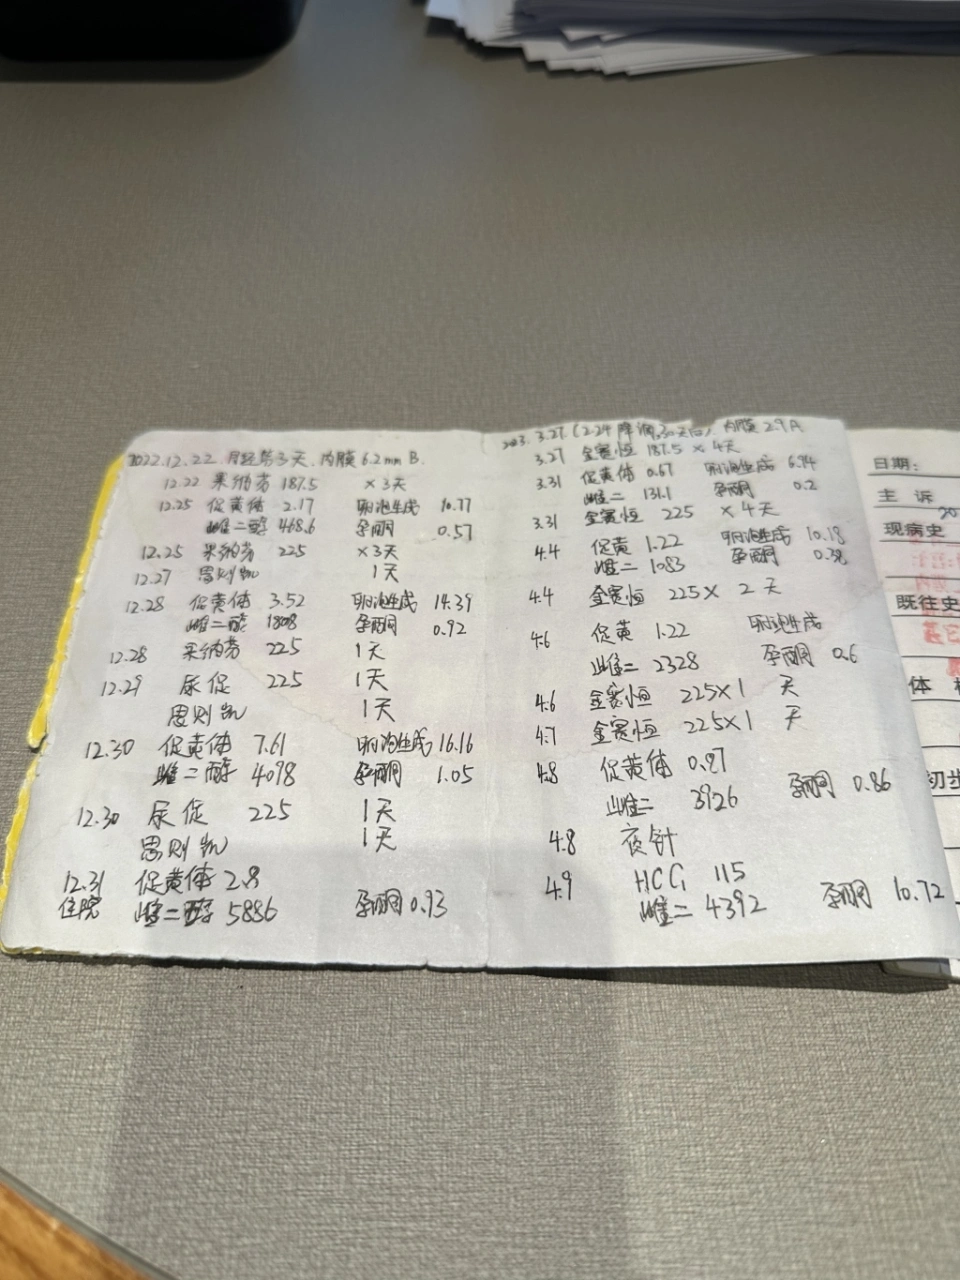 2022.12.22 月经第3天 内膜6.2mm B.
12.22 果纳芬 187.5 ×3天
12.25 促黄体 2.17 卵泡生成 10.77
雌二醇 468.6 孕酮 0.57
12.25 果纳芬 225 ×3天
12.27 思则凯 1天
12.28 促黄体 3.52 卵泡生成 14.39
雌二醇 1808 孕酮 0.92
12.28 果纳芬 225 1天
12.29 尿促 225 1天
思则凯 1天
12.30 促黄体 7.61 卵泡生成 16.16
雌二醇 4098 孕酮 1.05
12.30 尿促 225 1天
思则凯 1天
12.31 促黄体 2.8
住院 雌二醇 5886 孕酮 0.93
2023.3.27.(2.24降调,30天后) 内膜2.9A
3.27 金赛恒 187.5 ×4天
3.31 促黄体 0.67 卵泡生成 6.94
雌二 131.1 孕酮 0.2
3.31 金赛恒 225 ×4天
4.4 促黄 1.22 卵泡生成 10.18
雌二 1083 孕酮 0.38
4.4 金赛恒 225× 2 天
4.6 促黄 1.22 卵泡生成
雌二 2328 孕酮 0.6
4.6 金赛恒 225×1 天
4.7 金赛恒 225×1 天
4.8 促黄体 0.97
雌二 3926 孕酮 0.86
4.8 夜针
4.9 HCG 115
雌二 4392 孕酮 10.72
日期：
主 诉
现病史
既往史
体
初步